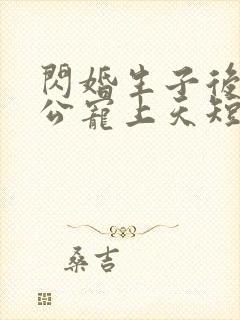 閃婚生子後
公寵上天短
桑吉